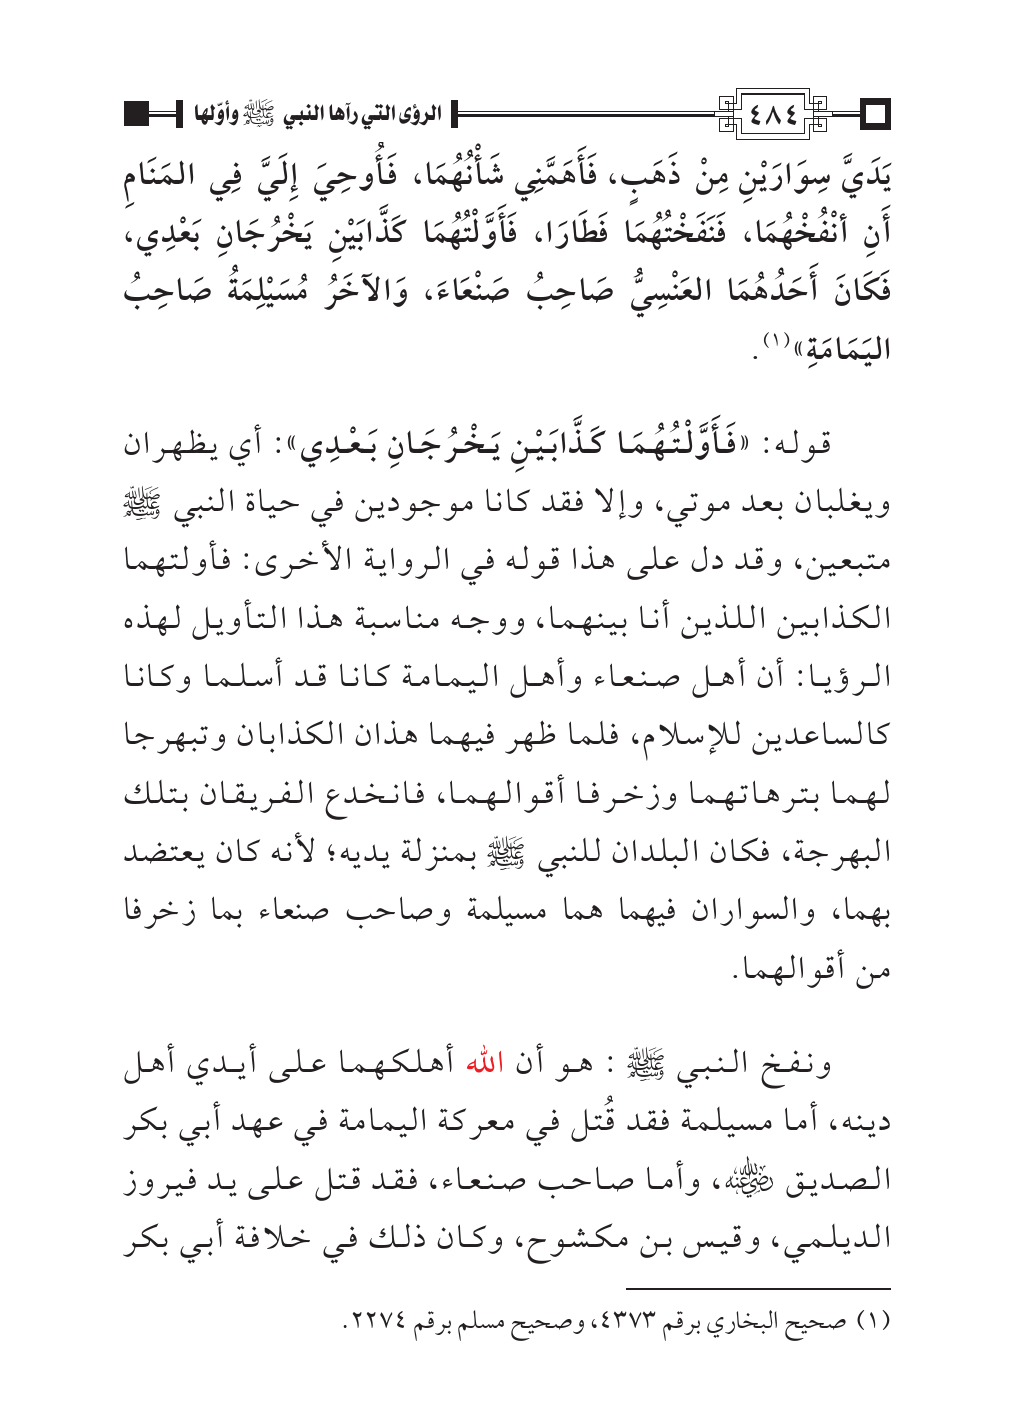 ٤٨٤ الرؤى التي رآها النبي ﷺ وأوّلها
يَدَيَّ سِوَارَيْنِ مِنْ ذَهَبٍ، فَأَهَمَّنِي شَأْنُهُمَا، فَأُوحِيَ إِلَيَّ فِي المَنَامِ
أَنِ أنْفُخْهُمَا، فَنَفَخْتُهُمَا فَطَارَا، فَأَوَّلْتُهُمَا كَذَّابَيْنِ يَخْرُجَانِ بَعْدِي،
فَكَانَ أَحَدُهُمَا العَنْسِيُّ صَاحِبُ صَنْعَاءَ، وَالآخَرُ مُسَيْلِمَةُ صَاحِبُ
اليَمَامَةِ»(١).
قوله: «فَأَوَّلْتُهُمَا كَذَّابَيْنِ يَخْرُجَانِ بَعْدِي»: أي يظهران
ويغلبان بعد موتي، وإلا فقد كانا موجودين في حياة النبي ﷺ
متبعين، وقد دل على هذا قوله في الرواية الأخرى: فأولتهما
الكذابين اللذين أنا بينهما، ووجه مناسبة هذا التأويل لهذه
الرؤيا: أن أهل صنعاء وأهل اليمامة كانا قد أسلما وكانا
كالساعدين للإسلام، فلما ظهر فيهما هذان الكذابان وتبهرجا
لهما بترهاتهما وزخرفا أقوالهما، فانخدع الفريقان بتلك
البهرجة، فكان البلدان للنبي ﷺ بمنزلة يديه؛ لأنه كان يعتضد
بهما، والسواران فيهما هما مسيلمة وصاحب صنعاء بما زخرفا
من أقوالهما.
ونفخ النبي ﷺ : هو أن الله أهلكهما على أيدي أهل
دينه، أما مسيلمة فقد قُتل في معركة اليمامة في عهد أبي بكر
الصديق رضي الله عنه، وأما صاحب صنعاء، فقد قتل على يد فيروز
الديلمي، وقيس بن مكشوح، وكان ذلك في خلافة أبي بكر
(١) صحيح البخاري برقم ٤٣٧٣، وصحيح مسلم برقم ٢٢٧٤.